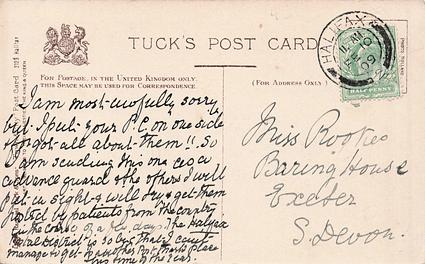 TUCK'S POST CARD
FOR POSTAGE IN THE UNITED KINGDOM ONLY,
THIS SPACE MAY BE USED FOR CORRESPONDENCE
(FOR ADDRESS ONLY)
HALIFAX
09
HALFPENNY
I am most wofully sorry
but I put your P.C. on one side
& forgot all about them!! So
I am sending this one as a
advance guard & the others I will
put in sight & will try & get them
posted by patients from the country
in the course of a few days. The Halifax
district is so that I can't
manage to get another Post Mark Place
this time of the year.
Miss Rookes
Baring House
Exeter
S. Devon.